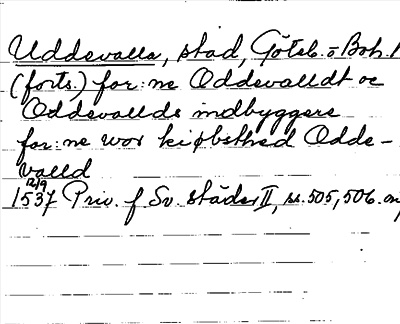 Uddevalla, stad, Göteb. o Boh. l
(forts.) for:ne Oddevalldt oc
Oddevallds indbyggere
for:ne wor kiøbsthed Odde-
valld
12/9
1537 Priv. f. Sv. städer II, ss. 505, 506. or